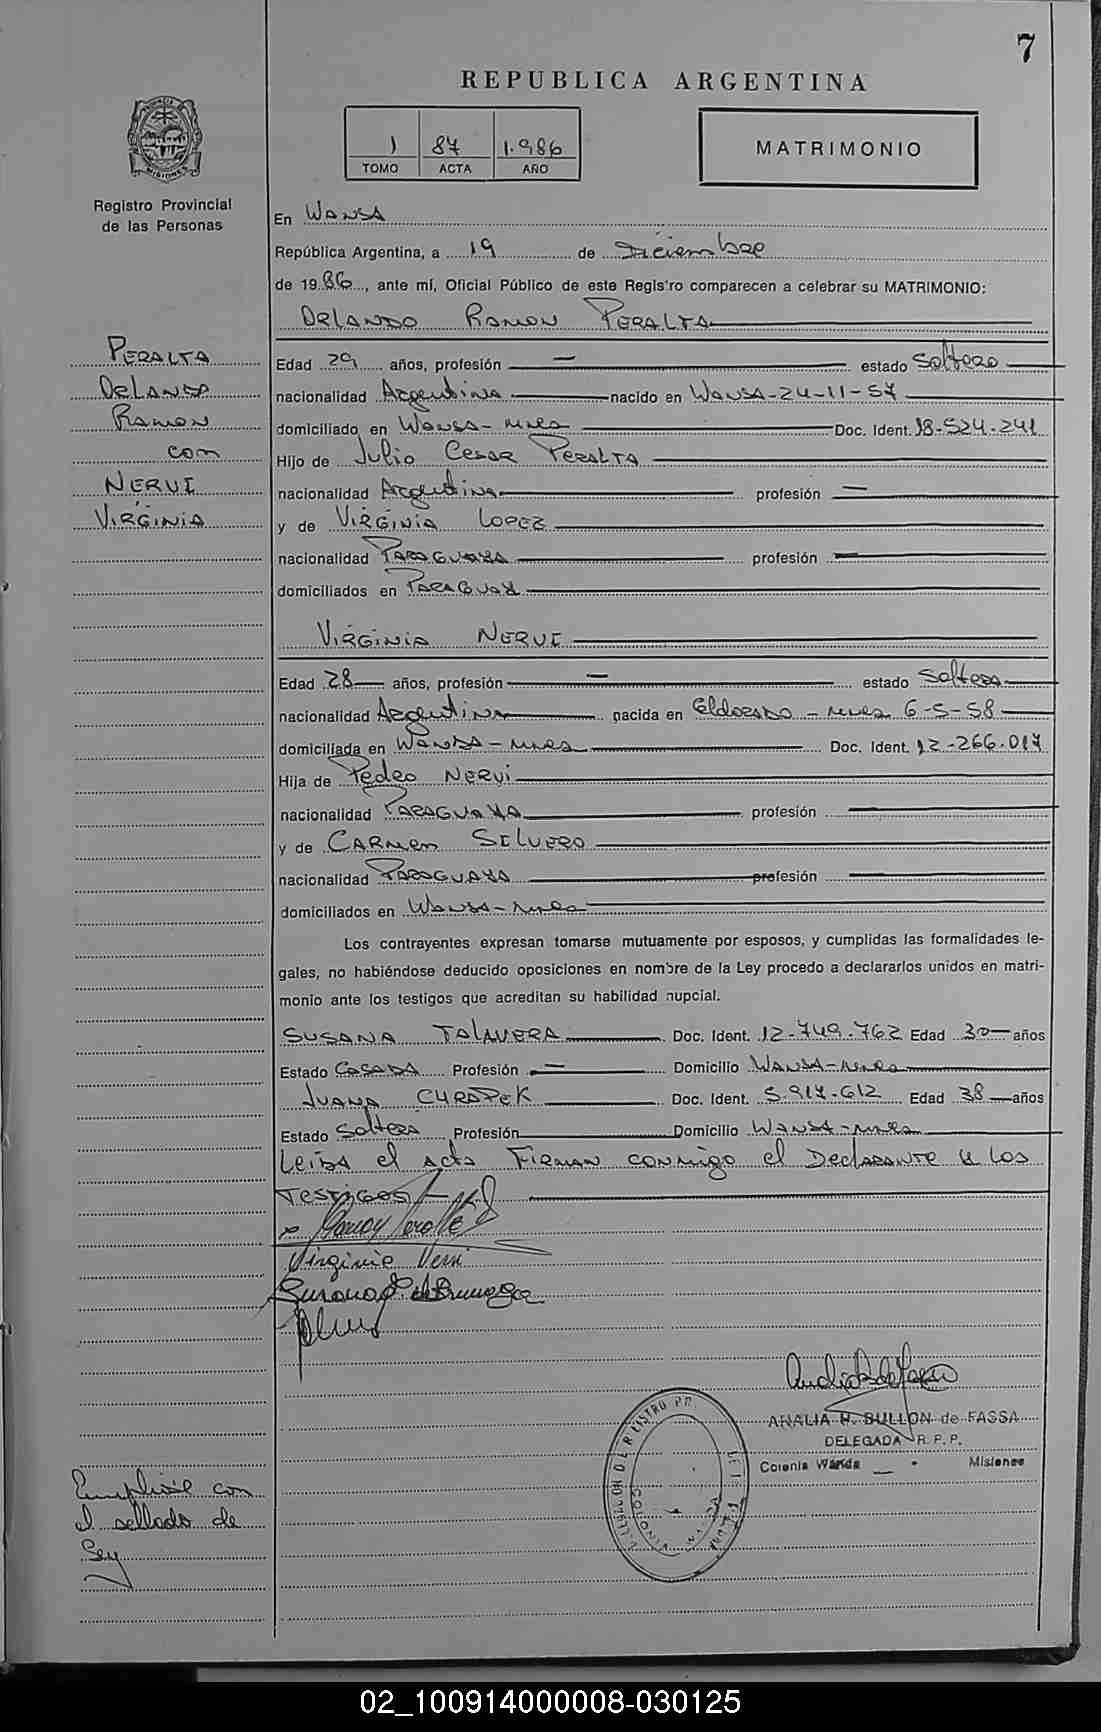 7
REPUBLICA ARGENTINA
1 87 1.986
TOMO ACTA AÑO
MATRIMONIO
MISIONES
Registro Provincial
de las Personas
En WANDA
República Argentina, a 19 de Diciembre
de 1986, ante mí, Oficial Público de este Registro comparecen a celebrar su MATRIMONIO:
ORLANDO RAMON PERALTA
PERALTA
ORLANDO
RAMON
con
NERVI
VIRGINIA
Edad 29 años, profesión — estado Soltero
nacionalidad Argentina nacido en WANDA-24-11-57
domiciliado en WANDA-Mnes Doc. Ident. 18-524-241
Hijo de Julio Cesar PERALTA
nacionalidad Argentina profesión —
y de VIRGINIA LOPEZ
nacionalidad PARAGUAYA profesión
domiciliados en PARAGUAY
VIRGINIA NERVI
Edad 28 años, profesión — estado Soltera
nacionalidad Argentina nacida en Eldorado - Mnes 6-5-58
domiciliada en WANDA-Mnes Doc. Ident. 12-266.017
Hija de Pedro NERVI
nacionalidad PARAGUAYA profesión
y de CARMEN SILVERO
nacionalidad PARAGUAYA profesión
domiciliados en WANDA-Mnes
Los contrayentes expresan tomarse mutuamente por esposos, y cumplidas las formalidades le-
gales, no habiéndose deducido oposiciones en nombre de la Ley procedo a declararlos unidos en matri-
monio ante los testigos que acreditan su habilidad nupcial.
SUSANA TALAVERA Doc. Ident. 12-749-762 Edad 30 años
Estado CASADA Profesión — Domicilio WANDA-Mnes
JUANA CYRAPEK Doc. Ident. 5.917-612 Edad 38 años
Estado Soltera Profesión Domicilio WANDA-Mnes
Leida el Acta Firman conmigo el Declarante y los
Testigos
Virginia Nervi
ANALIA H. BULLON de FASSA
DELEGADA R.P.P.
Colonia Wanda - Misiones
Cumplióse con
el sellado de
Ley
02_100914000008-030125